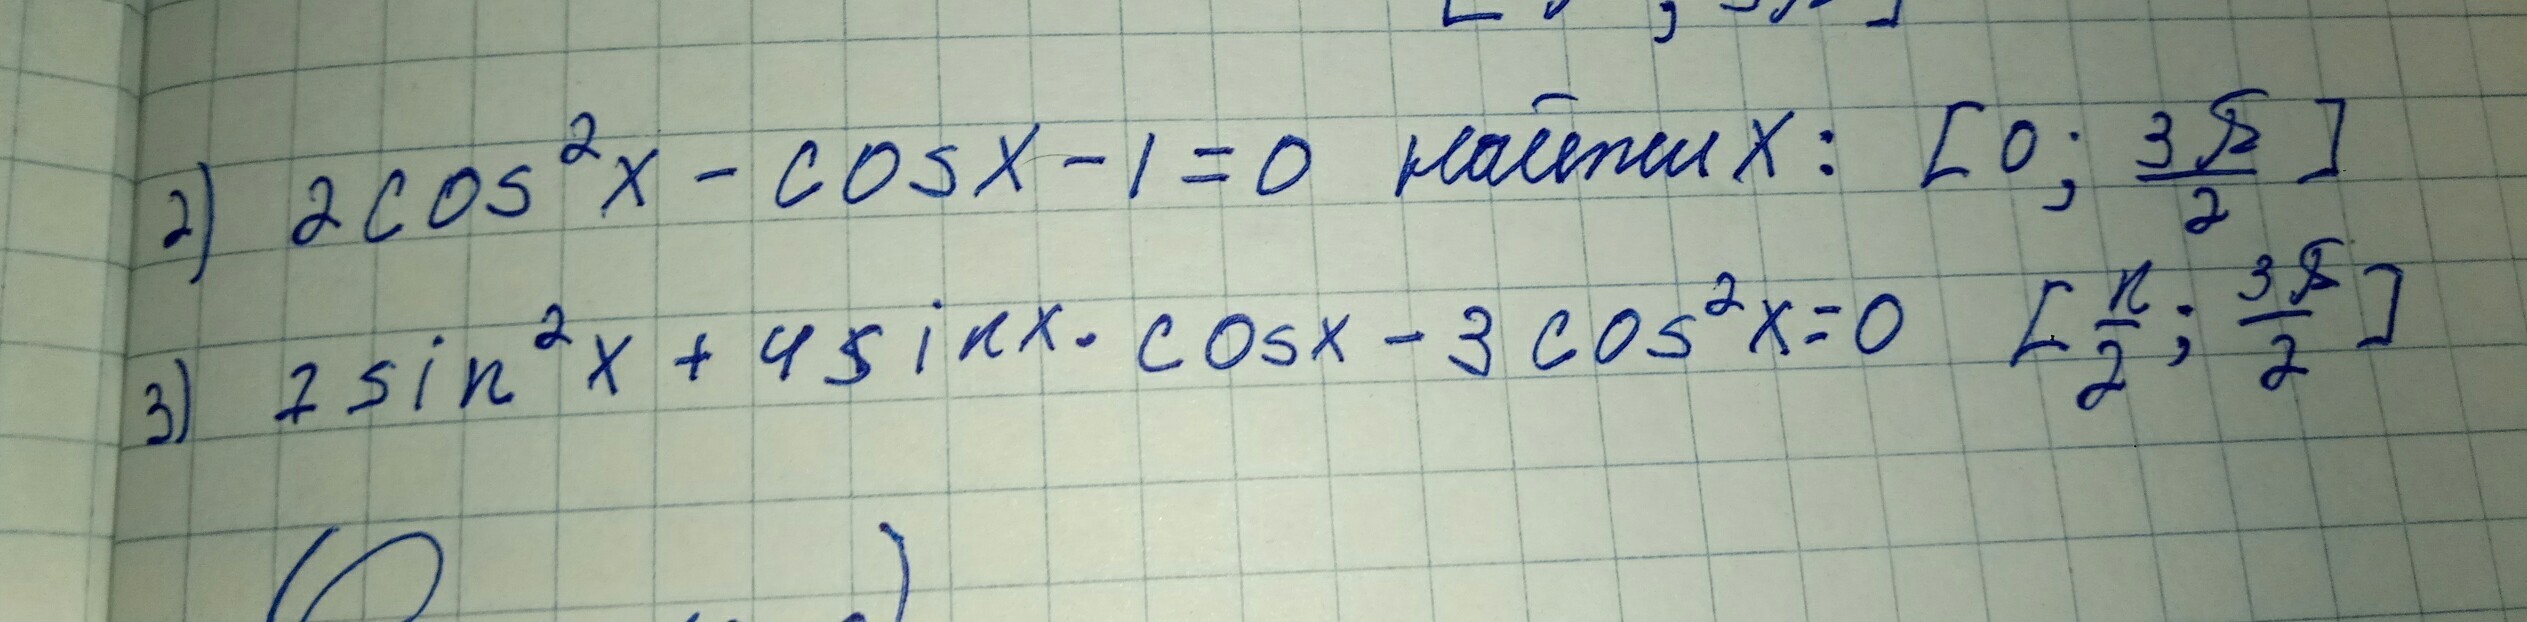 2) 2cos²x - cosx - 1 = 0 найти x: [0; 3π/2]
3) 7sin²x + 4sinx · cosx - 3cos²x = 0 [π/2; 3π/2]